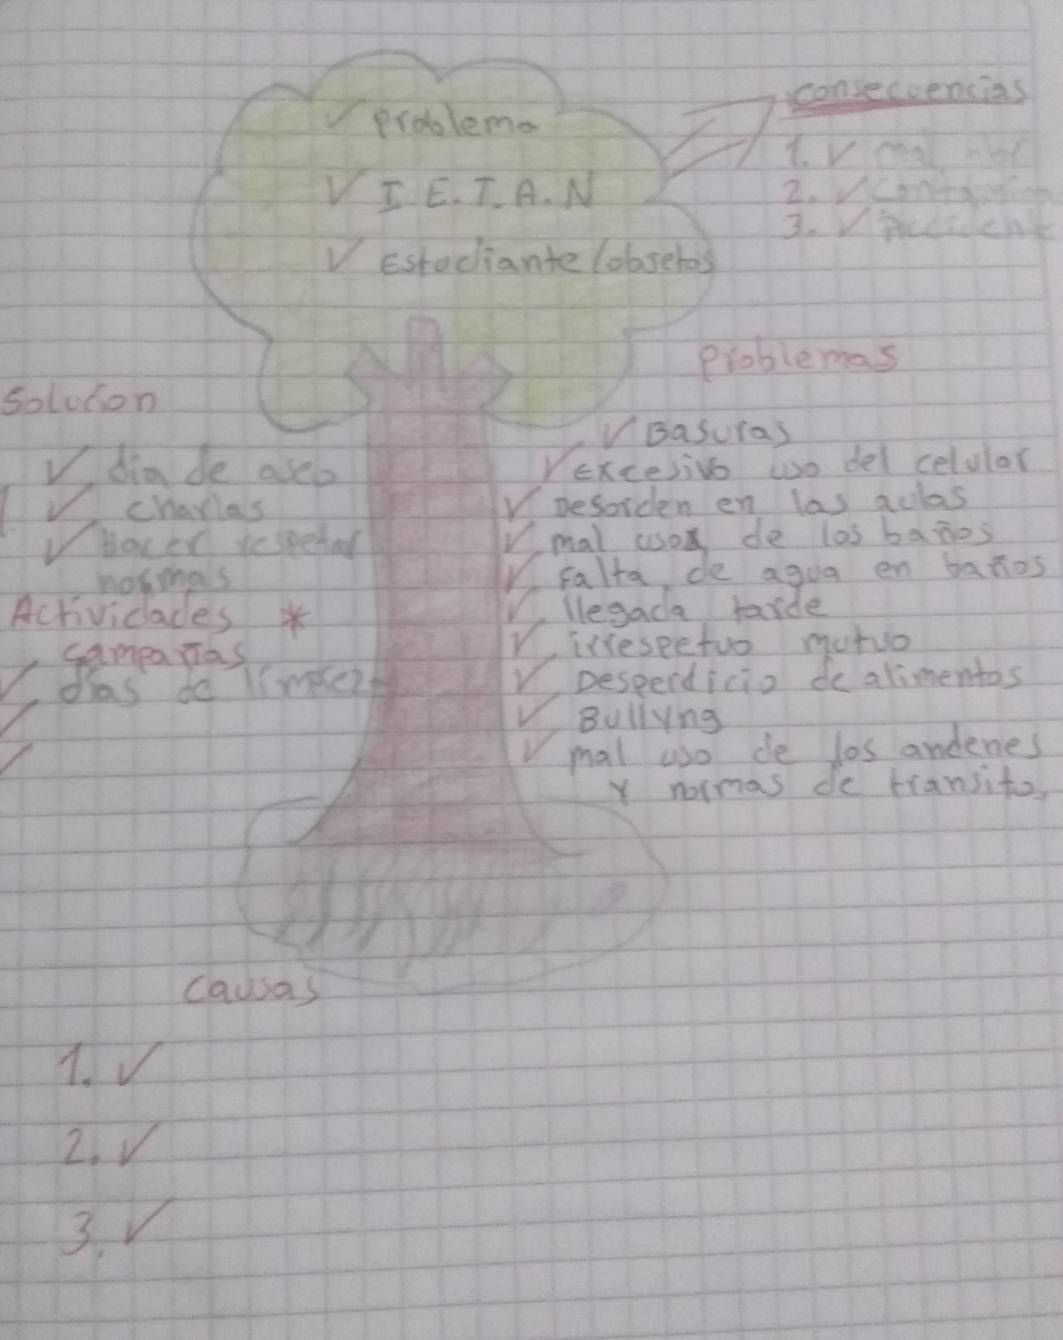 consecuencias
problema
1. mal
I.E.T.A.N
2.
3.
Estudiante/obsetos
problemas
Solucion
Basuras
dia de aseo
excesivo uso del celular
charlas
Desorden en las aulas
Hacer respetar
mal uso de los baños
normas
falta de agua en baños
Actividades *
llegada tarde
campañas
irrespetuo mutuo
dias de limpieza
Desperdicio de alimentos
Bullyng
mal uso de los andenes
y normas de transito
causas
1.
2.
3.